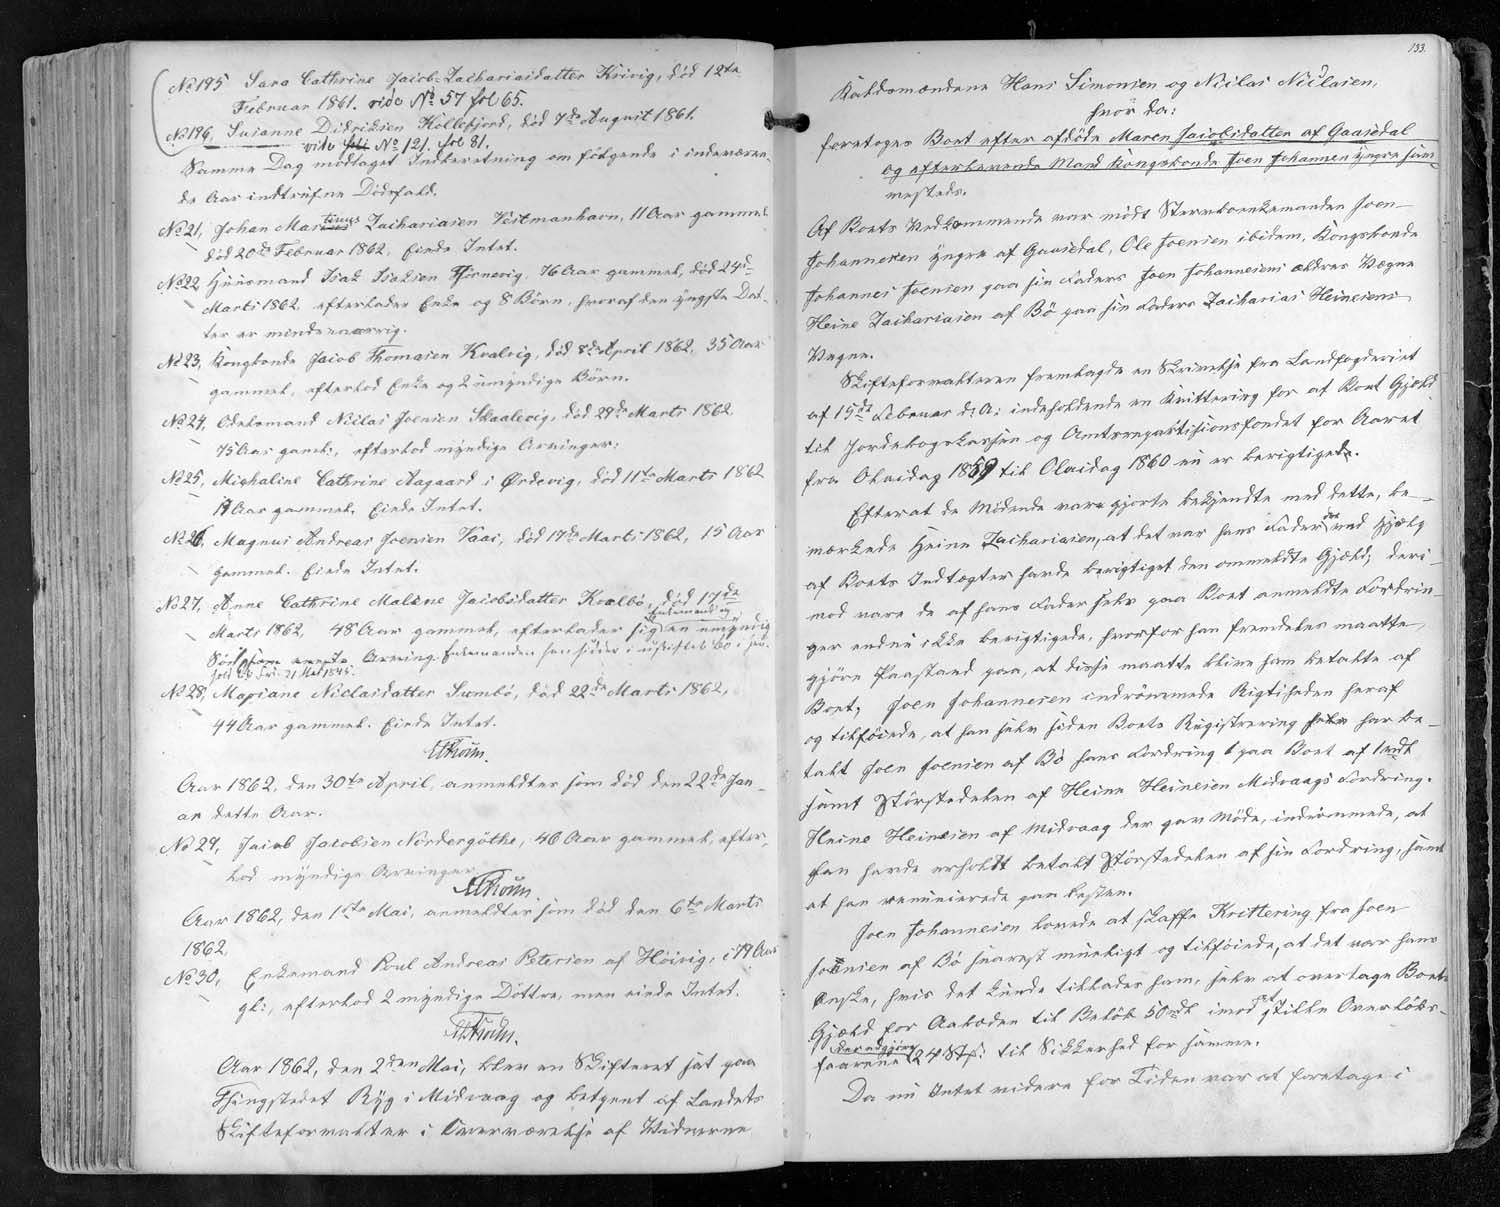 No 195 Sara Cathrine Jacob-Zachariasdatter Krivig, död 12te
Februar 1861. vide No 57 fol 65.
No 196, Susanne Didriksen Kollefjord, död 7de August 1861.
vide No 121. fol 81.
Samme Dag modtaget Indberetning om følgende i indeværen-
de Aar indtrufne Dödsfald.
No 21, Johan Martinus Zachariasen Vestmanhavn, 11 Aar gammel
död 20de Februar 1862, Eiede Intet.
No 22 Huusmand Isak Isaksen Tjörnevig, 76 Aar gammel, död 24de
Marts 1862, efterlader Enke og 8 Börn, hvoraf den yngste Dat-
ter er mindreaarig.
No 23, Kongsbonde Jacob Thomasen Kvalvig, död 8de April 1862, 35 Aar
gammel, efterlod Enke og 2 umyndige Börn.
No 24, Odelsmand Niclas Joensen Skaalevig, död 29de Marts 1862
75 Aar gaml:, efterlod myndige Arvinger:
No 25, Michaline Cathrine Aagaard i Ördevig, död 11te Marts 1862
Aar gammel. Eiede Intet.
No 26, Magnus Andreas Joensen Vaai, död 17de Marts 1862, 15 Aar
gammel. Eiede Intet.
No 27, Anne Cathrine Malene Jacobsdatter Kvalbö, död 17de
Marts 1862, 48 Aar gammel, efterlader sig Enkemand og en umyndig
Sön som eneste Arving. Enkemanden hensidder i uskiftet Bo i hen-
hold til Fri: 21 Mai 1845.
No 28, Mariane Niclasdatter Sumbö, död 22de Marts 1862,
44 Aar gammel. Eiede Intet.
Aar 1862, den 30te April, anmeldtes som död den 22de Jan-
ar dette Aar.
No 29, Jacob Jacobsen Nordergöthe, 46 Aar gammel, efter-
lod myndige Arvinger
Aar 1862, den 1ste Mai, anmeldtes som död den 6te Marts
1862.
No 30, Enkemand Poul Andreas Petersen af Höivig, i 79 Aar
gl:, efterlod 2 myndige Döttre, men eiede Intet.
Aar 1862, den 2den Mai, blev en Skifteret sat paa
Thingstedet Ryg i Midvaag og betjent af Landets
Skifteforvalter i Overværelse af Vidnerne
133.
Kaldsmændene Hans Simonsen og Niclas Niclasen,
hvor da:
foretoges Boet efter afdöde Maren Jacobsdatter af Gaasedal
og efterlevende Mand Kongsbonde Joen Johannesen yngre sam-
mesteds.
Af Boets Vedkommende var mödt Stervboenkemanden Joen
Johannesen yngre af Gaasedal, Ole Joensen ibidem, Kongsbonde
Johannes Joensen paa sin Faders Joen Johannesens ældres Vegne
Heine Zachariasen af Bö paa sin Faders Zacharias Heinesens
Vegne.
Skifteforvalteren fremlagde en Skrivelse fra Landfogderiet
af 15de Februar d: A: indeholdende en Kvittering for at Boets Gjæld
til Jordebogskassen og Amtsrepartitionsfondet for Aaret
fra Olaidag 1859 til Olaidag 1860 nu er berigtiget.
Efterat de Mödende vare gjorte bekjendte med dette, be-
mærkede Heine Zachariasen, at det var hans Fader der ved Hjælp
af Boets Indtægter havde berigtiget den ommeldte Gjæld; deri-
mod vare de af hans Fader selv paa Boet anmeldte Fordrin-
ger endnu ikke berigtigede, hvorfor han fremdeles maatte
gjöre Paastand paa, at disse maatte blive ham betalte af
Boet; Joen Johannesen indrömmede Rigtigheden heraf
og tilföiede, at han selv siden Boets Registrering har be-
talt Joen Joensen af Bö hans Fordring paa Boet af 1 rdl
samt Störstedelen af Heine Heinesen Midvaags Fordring.
Heine Heinesen af Midvaag der gav Möde, indrömmede, at
han havde erholdt betalt Störstedelen af sin Fordring, samt
at han renuncierede paa Resten.
Joen Johannesen lovede at skaffe Kvittering fra Joen
Joensen af Bö snarest mueligt og tilföiede, at det var hans
Önske, hvis det kunde tillades ham, selv at overtage Boets
Gjæld for Aaboden til Belöb 50 rdl imod at stille Overlöbs-
faarene der udgjöre (24 Stk: til Sikkerhed for samme.
Da nu Intet videre for Tiden var at foretage i